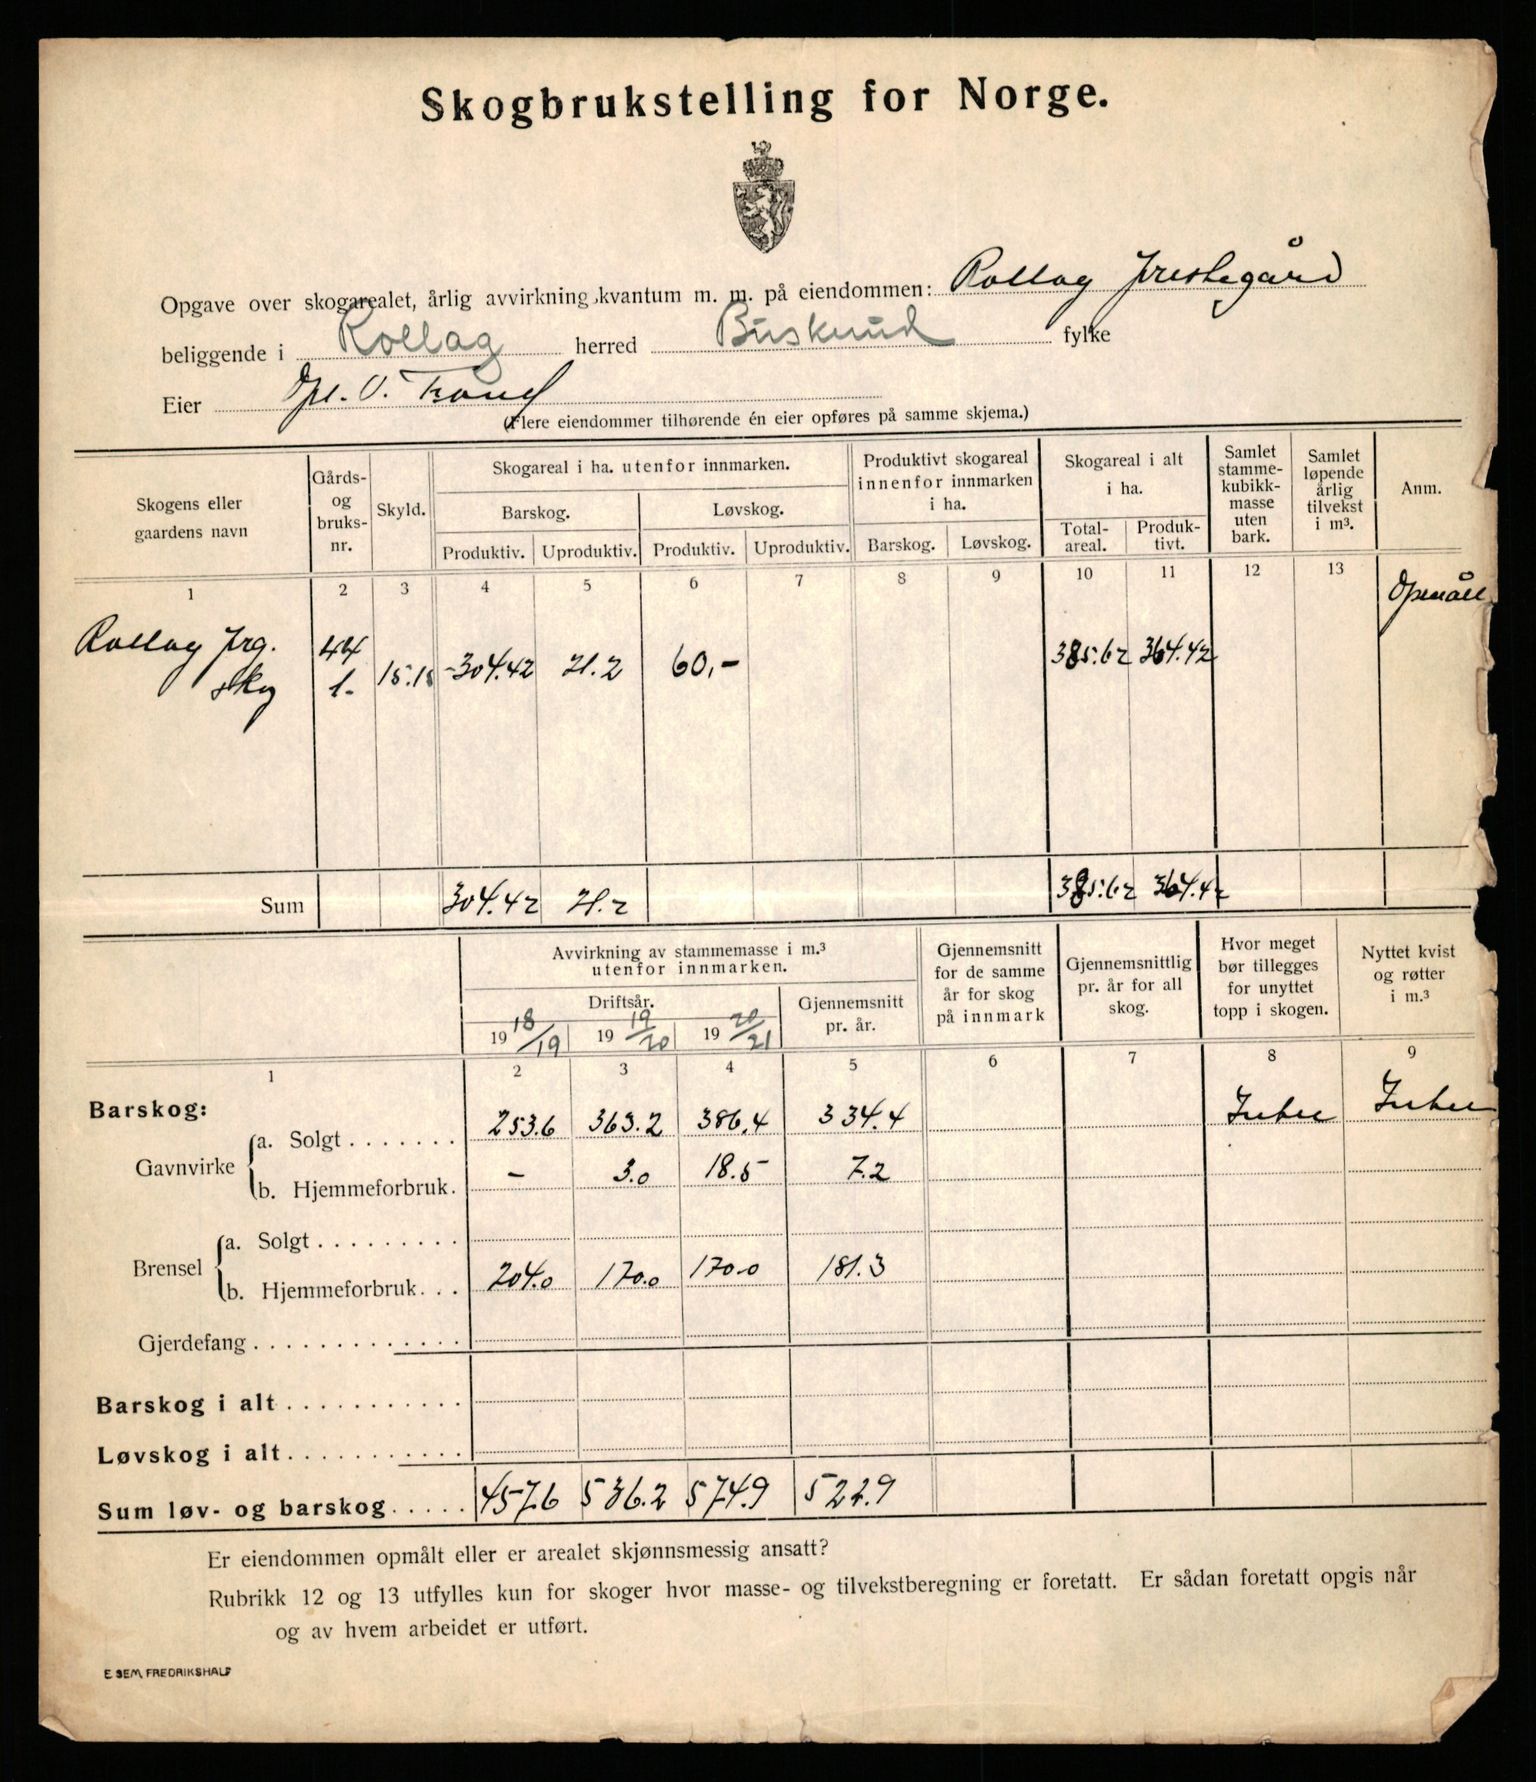 Skogbrukstelling for Norge.
Opgave over skogarealet, årlig avvirkningskvantum m. m. på eiendommen: Rollag prestegård
beliggende i Rollag herred Buskerud fylke
Eier Opl. V.
(Flere eiendommer tilhørende én eier opføres på samme skjema.)
Skogens eller gaardens navn
Gårds- og bruks-nr.
Skyld.
Skogareal i ha. utenfor innmarken.
Barskog. Løvskog.
Produktiv. Uproduktiv. Produktiv. Uproduktiv.
Produktivt skogareal innenfor innmarken i ha.
Barskog. Løvskog.
Skogareal i alt i ha.
Total-areal. Produk-tivt.
Samlet stamme-kubikk-masse uten bark.
Samlet løpende årlig tilvekst i m³.
Anm.
1 2 3 4 5 6 7 8 9 10 11 12 13
Opmålt
Rollag prg. 44
skog 1. 15.15 304.42 21.2 60,- 385.62 364.42
Sum 304.42 21.2 385.62 364.42
Avvirkning av stammemasse i m.³ utenfor innmarken.
Driftsår.
19 18/19 19 19/20 19 20/21
Gjennemsnitt pr. år.
Gjennemsnitt for de samme år for skog på innmark
Gjennemsnittlig pr. år for all skog.
Hvor meget bør tillegges for unyttet topp i skogen.
Nyttet kvist og røtter i m.³
1 2 3 4 5 6 7 8 9
Barskog:
Gavnvirke
a. Solgt 253.6 363.2 386.4 334.4 Intet Intet
b. Hjemmeforbruk. - 3.0 18.5 7.2
Brensel
a. Solgt
b. Hjemmeforbruk 204.0 170.0 170.0 181.3
Gjerdefang
Barskog i alt
Løvskog i alt
Sum løv- og barskog 457.6 536.2 574.9 522.9
Er eiendommen opmålt eller er arealet skjønnsmessig ansatt?
Rubrikk 12 og 13 utfylles kun for skoger hvor masse- og tilvekstberegning er foretatt. Er sådan foretatt opgis når
og av hvem arbeidet er utført.
E SEM, FREDRIKSHALD